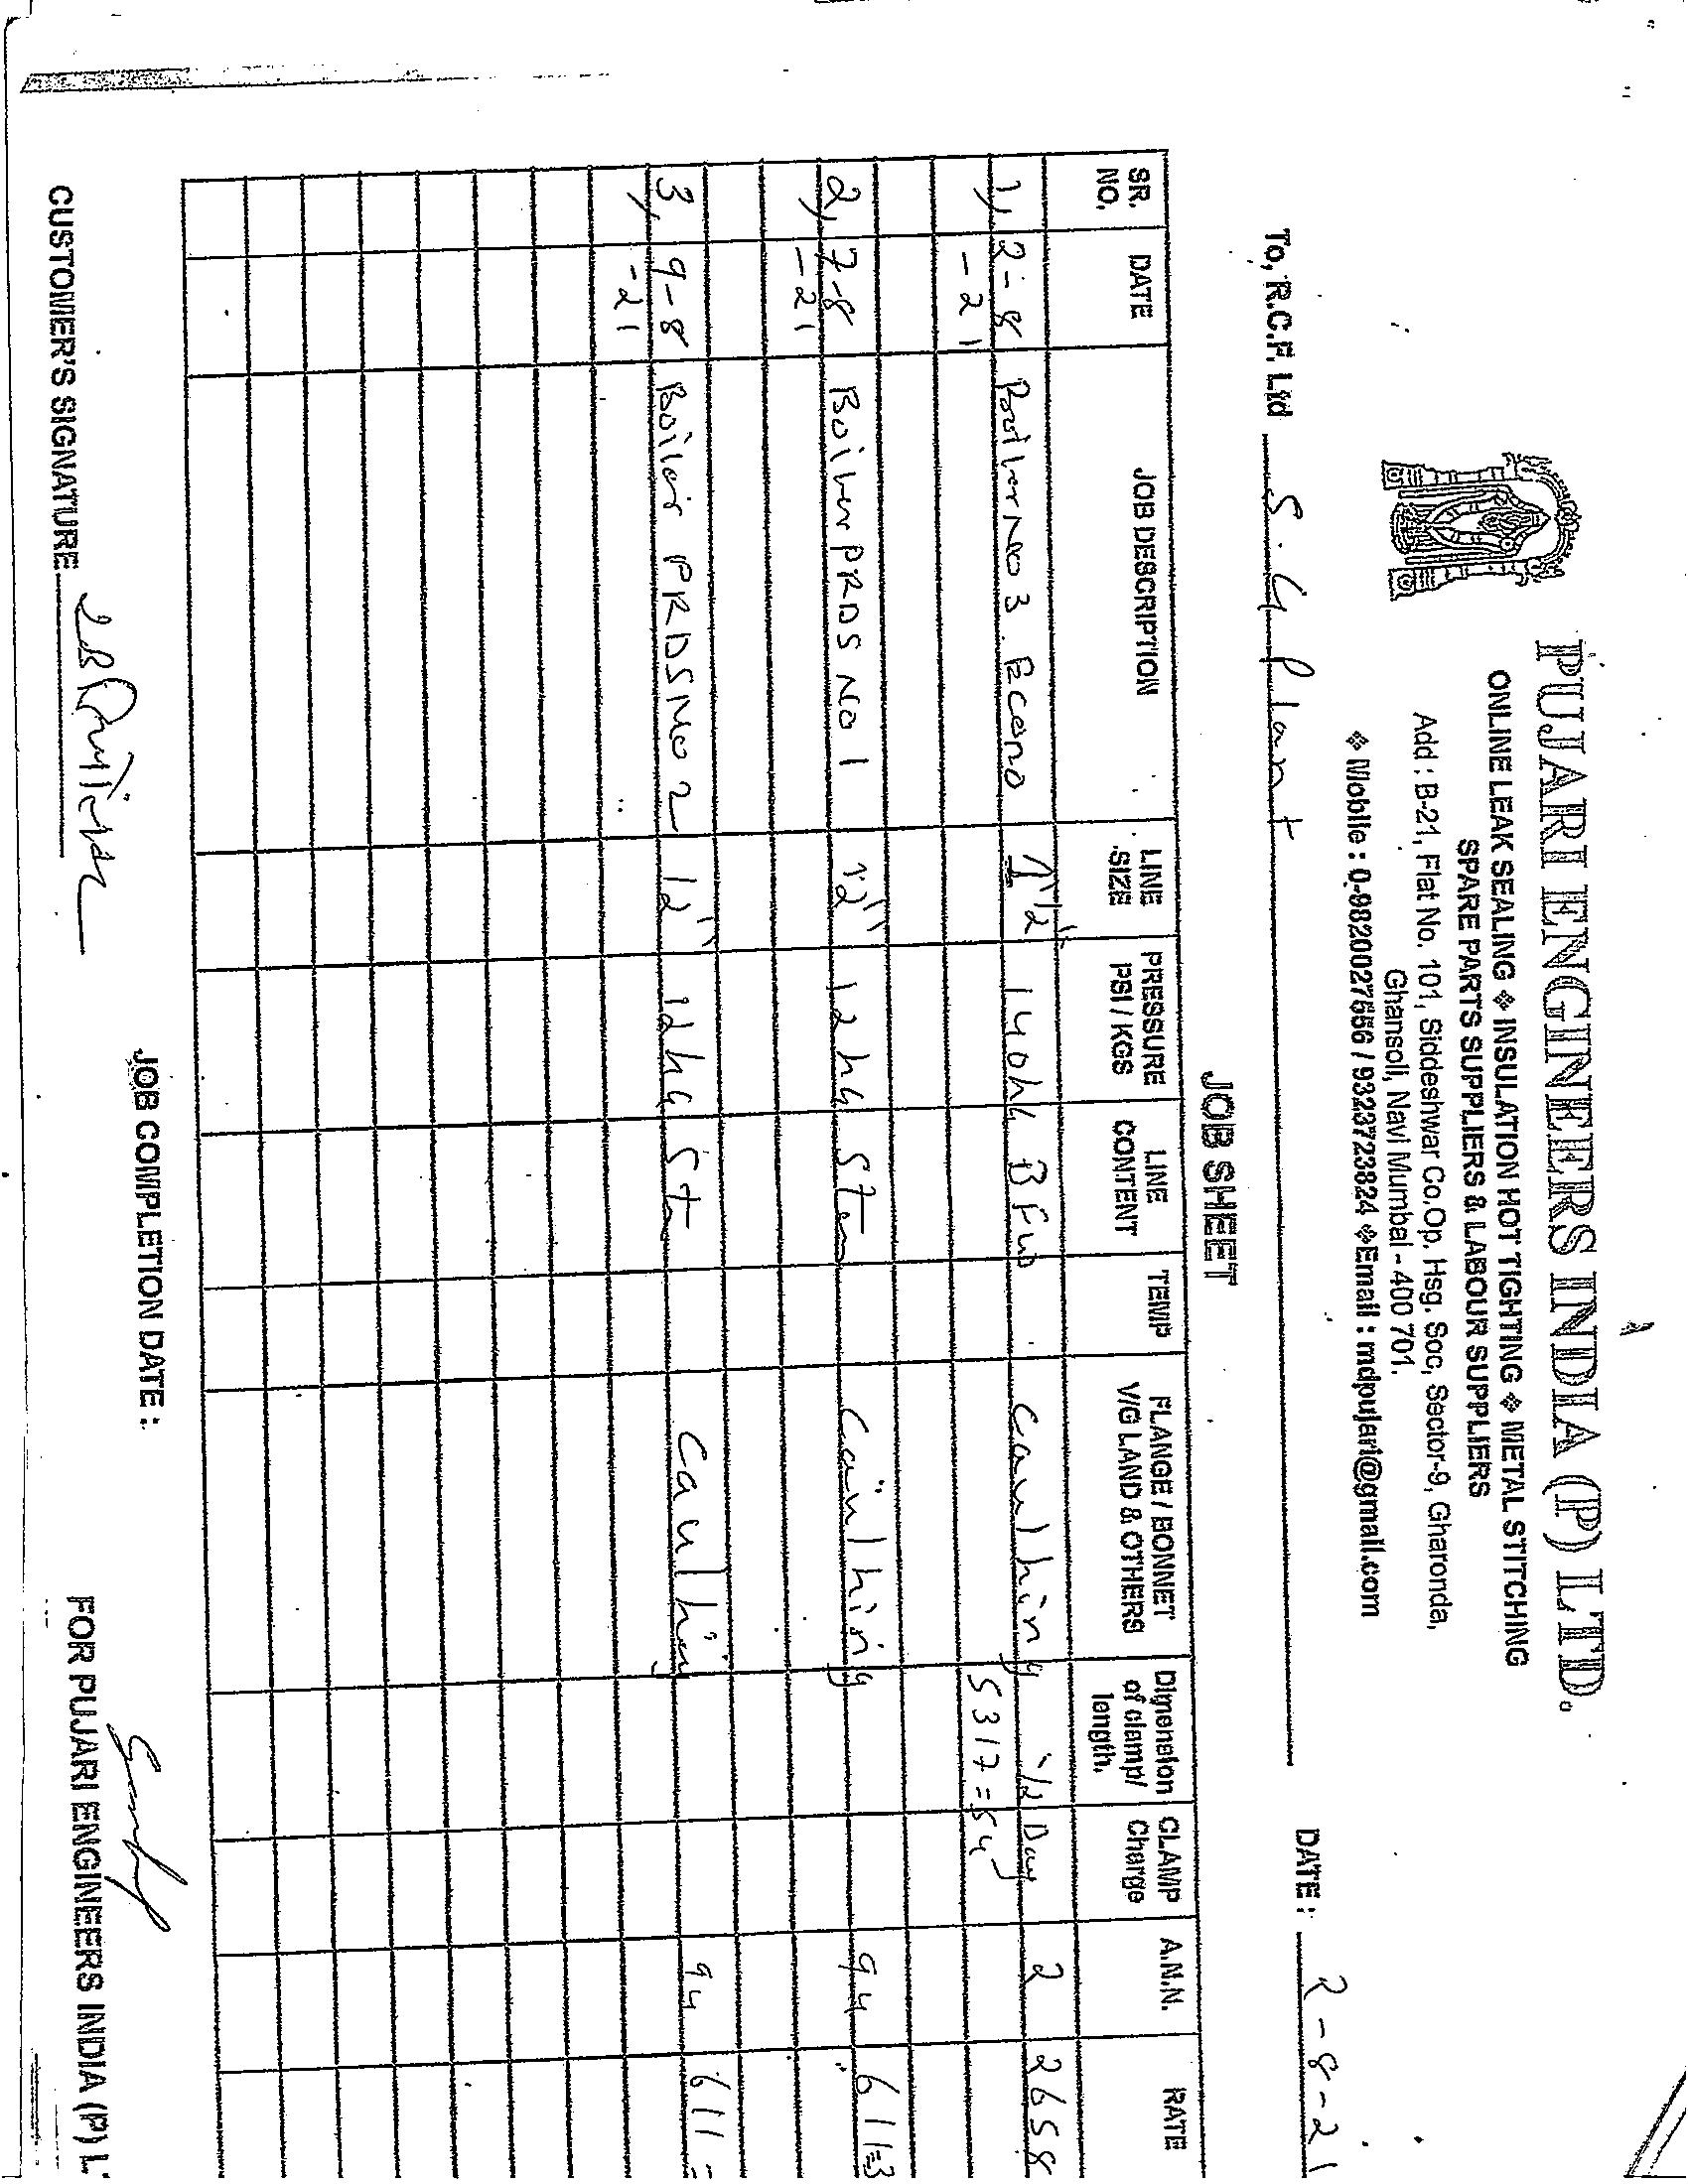 PUJARI ENGINEERS INDIA (P) LTD.
ONLINE LEAK SEALING ❖ INSULATION HOT TIGHTING ❖ METAL STITCHING
SPARE PARTS SUPPLIERS & LABOUR SUPPLIERS
Add : B-21, Flat No. 101, Siddeshwar Co.Op. Hsg. Soc, Sector-9, Gharonda,
Ghansoli, Navi Mumbai - 400 701.
❖ Mobile : 0-9820027556 / 9323723824 ❖ Email : mdpujari@gmail.com
To, R.C.F. Ltd S.G Plant DATE : 2-8-21
JOB SHEET
SR. NO. DATE JOB DESCRIPTION LINE SIZE PRESSURE PSI / KGS LINE CONTENT TEMP FLANGE / BONNET V/G LAND & OTHERS Dimension of clamp/ length. CLAMP Charge A.N.N. RATE
1, 2-8 No 3 Econo 1 1/2" 140 BFW 1/2 Day 2 2658
-21 5317=54
2, 7-8 PRDS NO 1 12" 12 94 611=3
-21
3, 9-8 Boiler PRDS NO 2 12" 12 94 611=
-21
JOB COMPLETION DATE :
CUSTOMER'S SIGNATURE FOR PUJARI ENGINEERS INDIA (P) LT